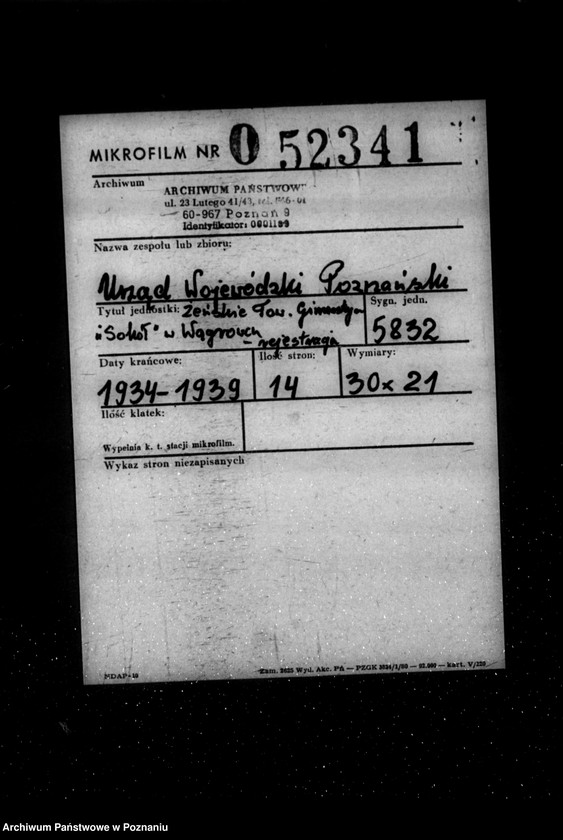 MIKROFILM NR 0 52341
Archiwum
ARCHIWUM PAŃSTWOW
ul. 23 Lutego 41/43, tel.
60-967 Poznań 9
Identyfikator: 0001189
Nazwa zespołu lub zbioru:
Urząd Wojewódzki Poznański
Tytuł jednostki: Żeńskie Tow. Gimnastyn
"Sokół" w Wągrowcu
- rejestracja
Sygn. jedn.
5832
Daty krańcowe:
1934-1939
Ilość stron:
14
Wymiary:
30x21
Ilość klatek:
Wypełnia k. t. stacji mikrofilm.
Wykaz stron niezapisanych
MDAP-10
Zam. 3625 Wyd. Akc. PŃ — PZGK 3624/1/80 — 52.000 — kart. V/220
Archiwum Państwowe w Poznaniu